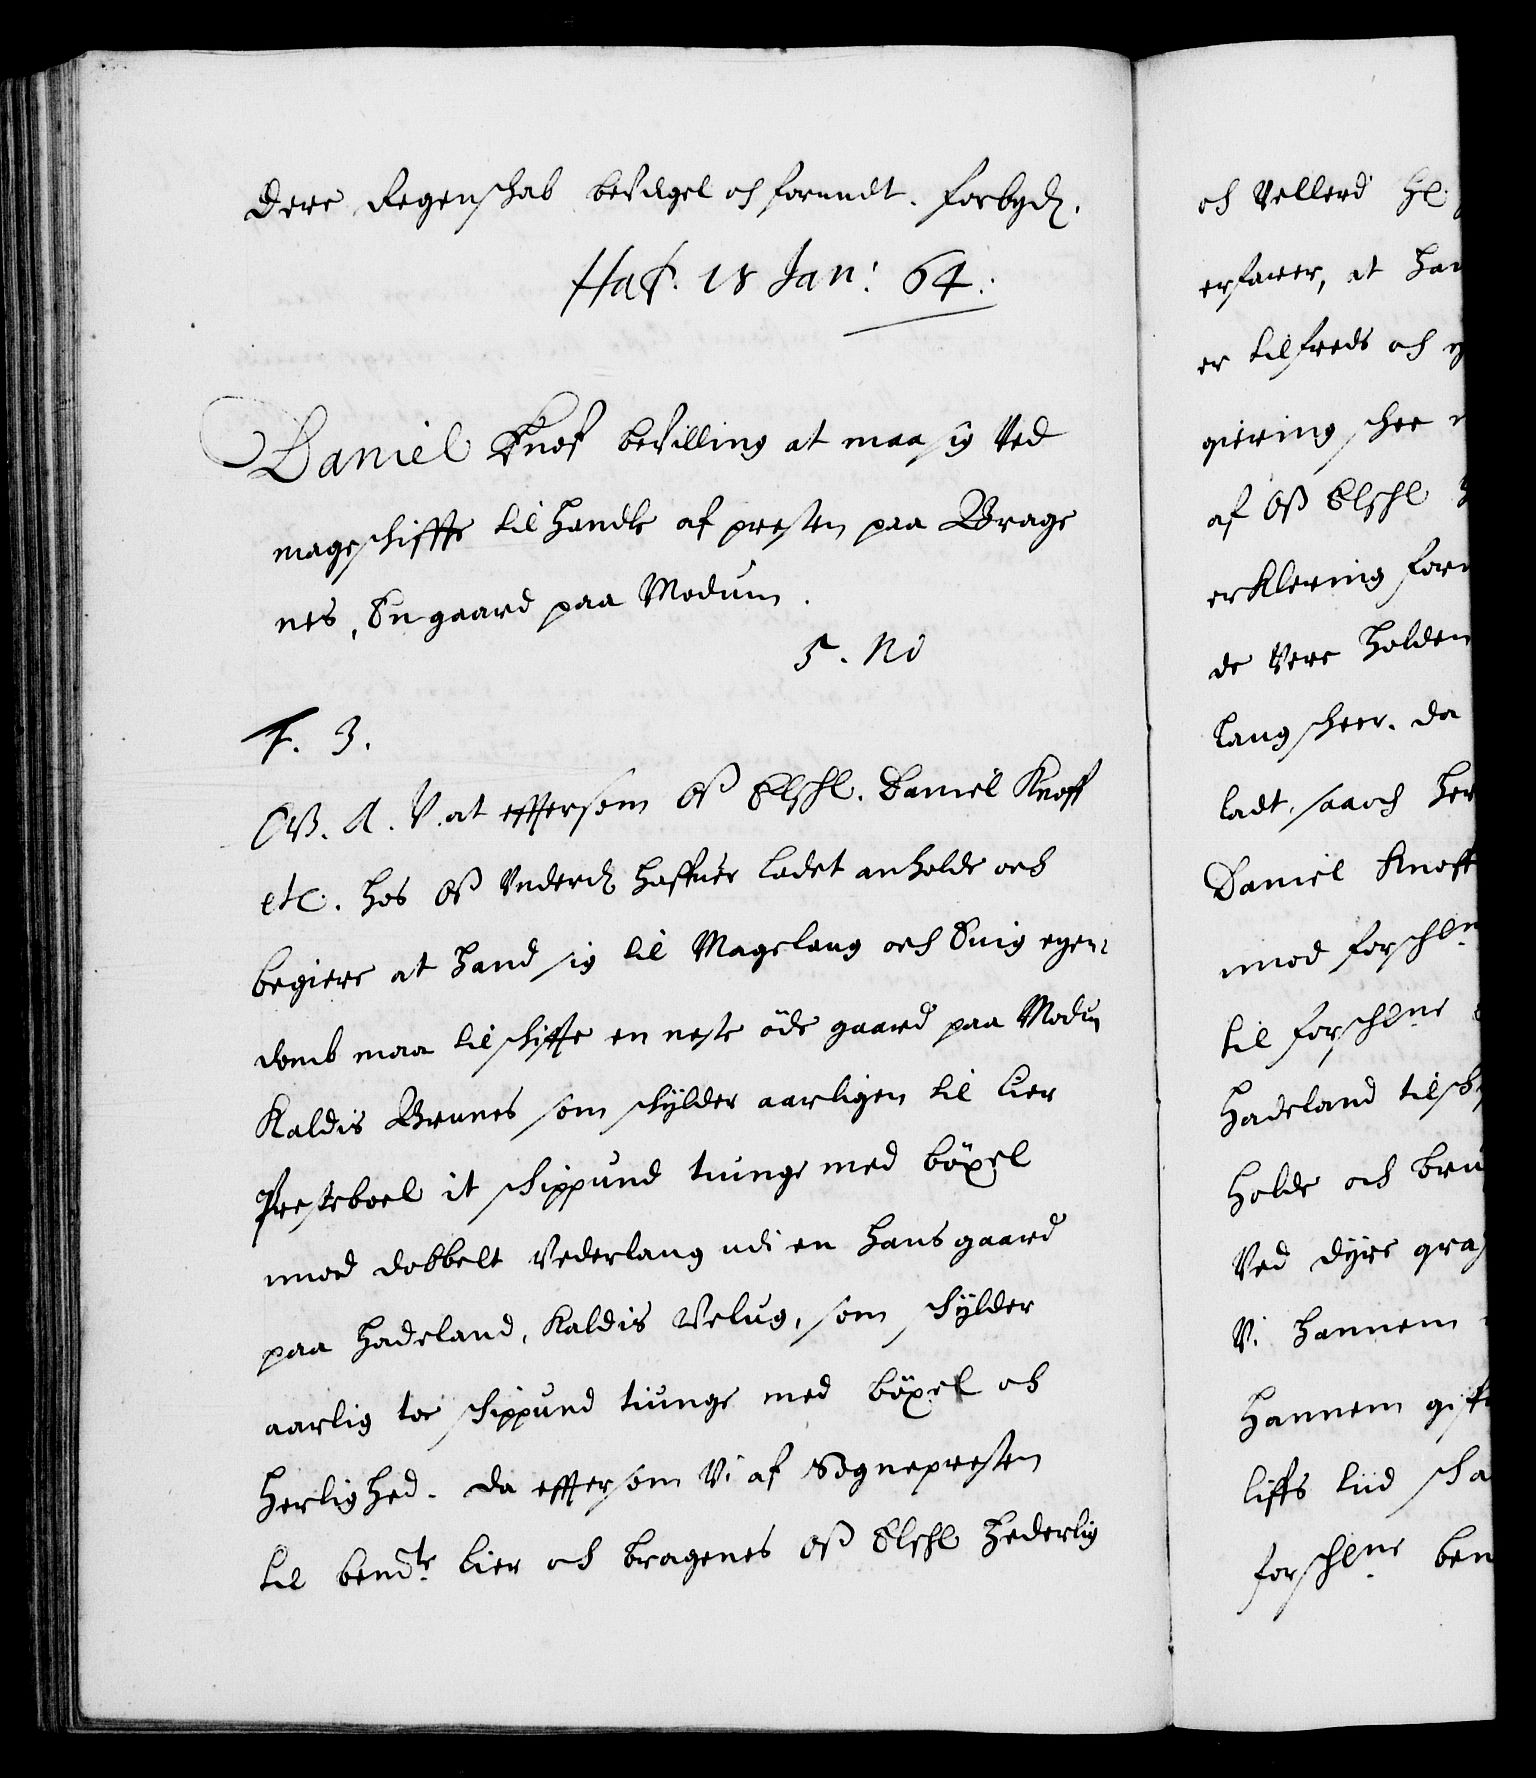 dere Regenschab bevilgel och forundt. forbydz.
Haf. 18 Jan: 64.
Daniel Knof bevilling at maa sig Ved
mageschiffte tilhandle af presten paa Brage
nes, En gaard paa Modum.
5. No
F. 3.
G. A. V. at effersom Oß Elschl. Daniel Knoff
etc. hos Oß Underd haffuer ladet anholde och
begiere at hand sig til Magelaug och Euig eyen:
domb maa tilschiffte en neste öde gaard paa Modum
Kaldis Brunes som schylder aarligen til Lier
Presteboel it schippund tiunge med böxel
imod dobbelt Vederlaug udi en hans gaard
paa Hadeland, Kaldis Velug, som schylder
aarlig toe schippund tiunge med böxel och
herlighed. da effersom Vi af Sognepresten
til bemdte Lier och bragenes Oß Elschl hederlig
och Vellerd Hl.
erfarer, at han
er tilfreds och
giering schee
af Oß Elschl
erklering for
de Vere holden
laug scheer. da
ladt, saa och her
Daniel Knoff
imod forschlne
til forschlne
Hadeland tilsch
holde och bru
Ved dyre
Vi hannem
hannem gift
liffs tiid scha
forschlne bem